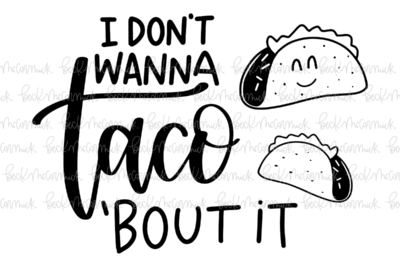 I DON'T
WANNA
Taco
'BOUT iT